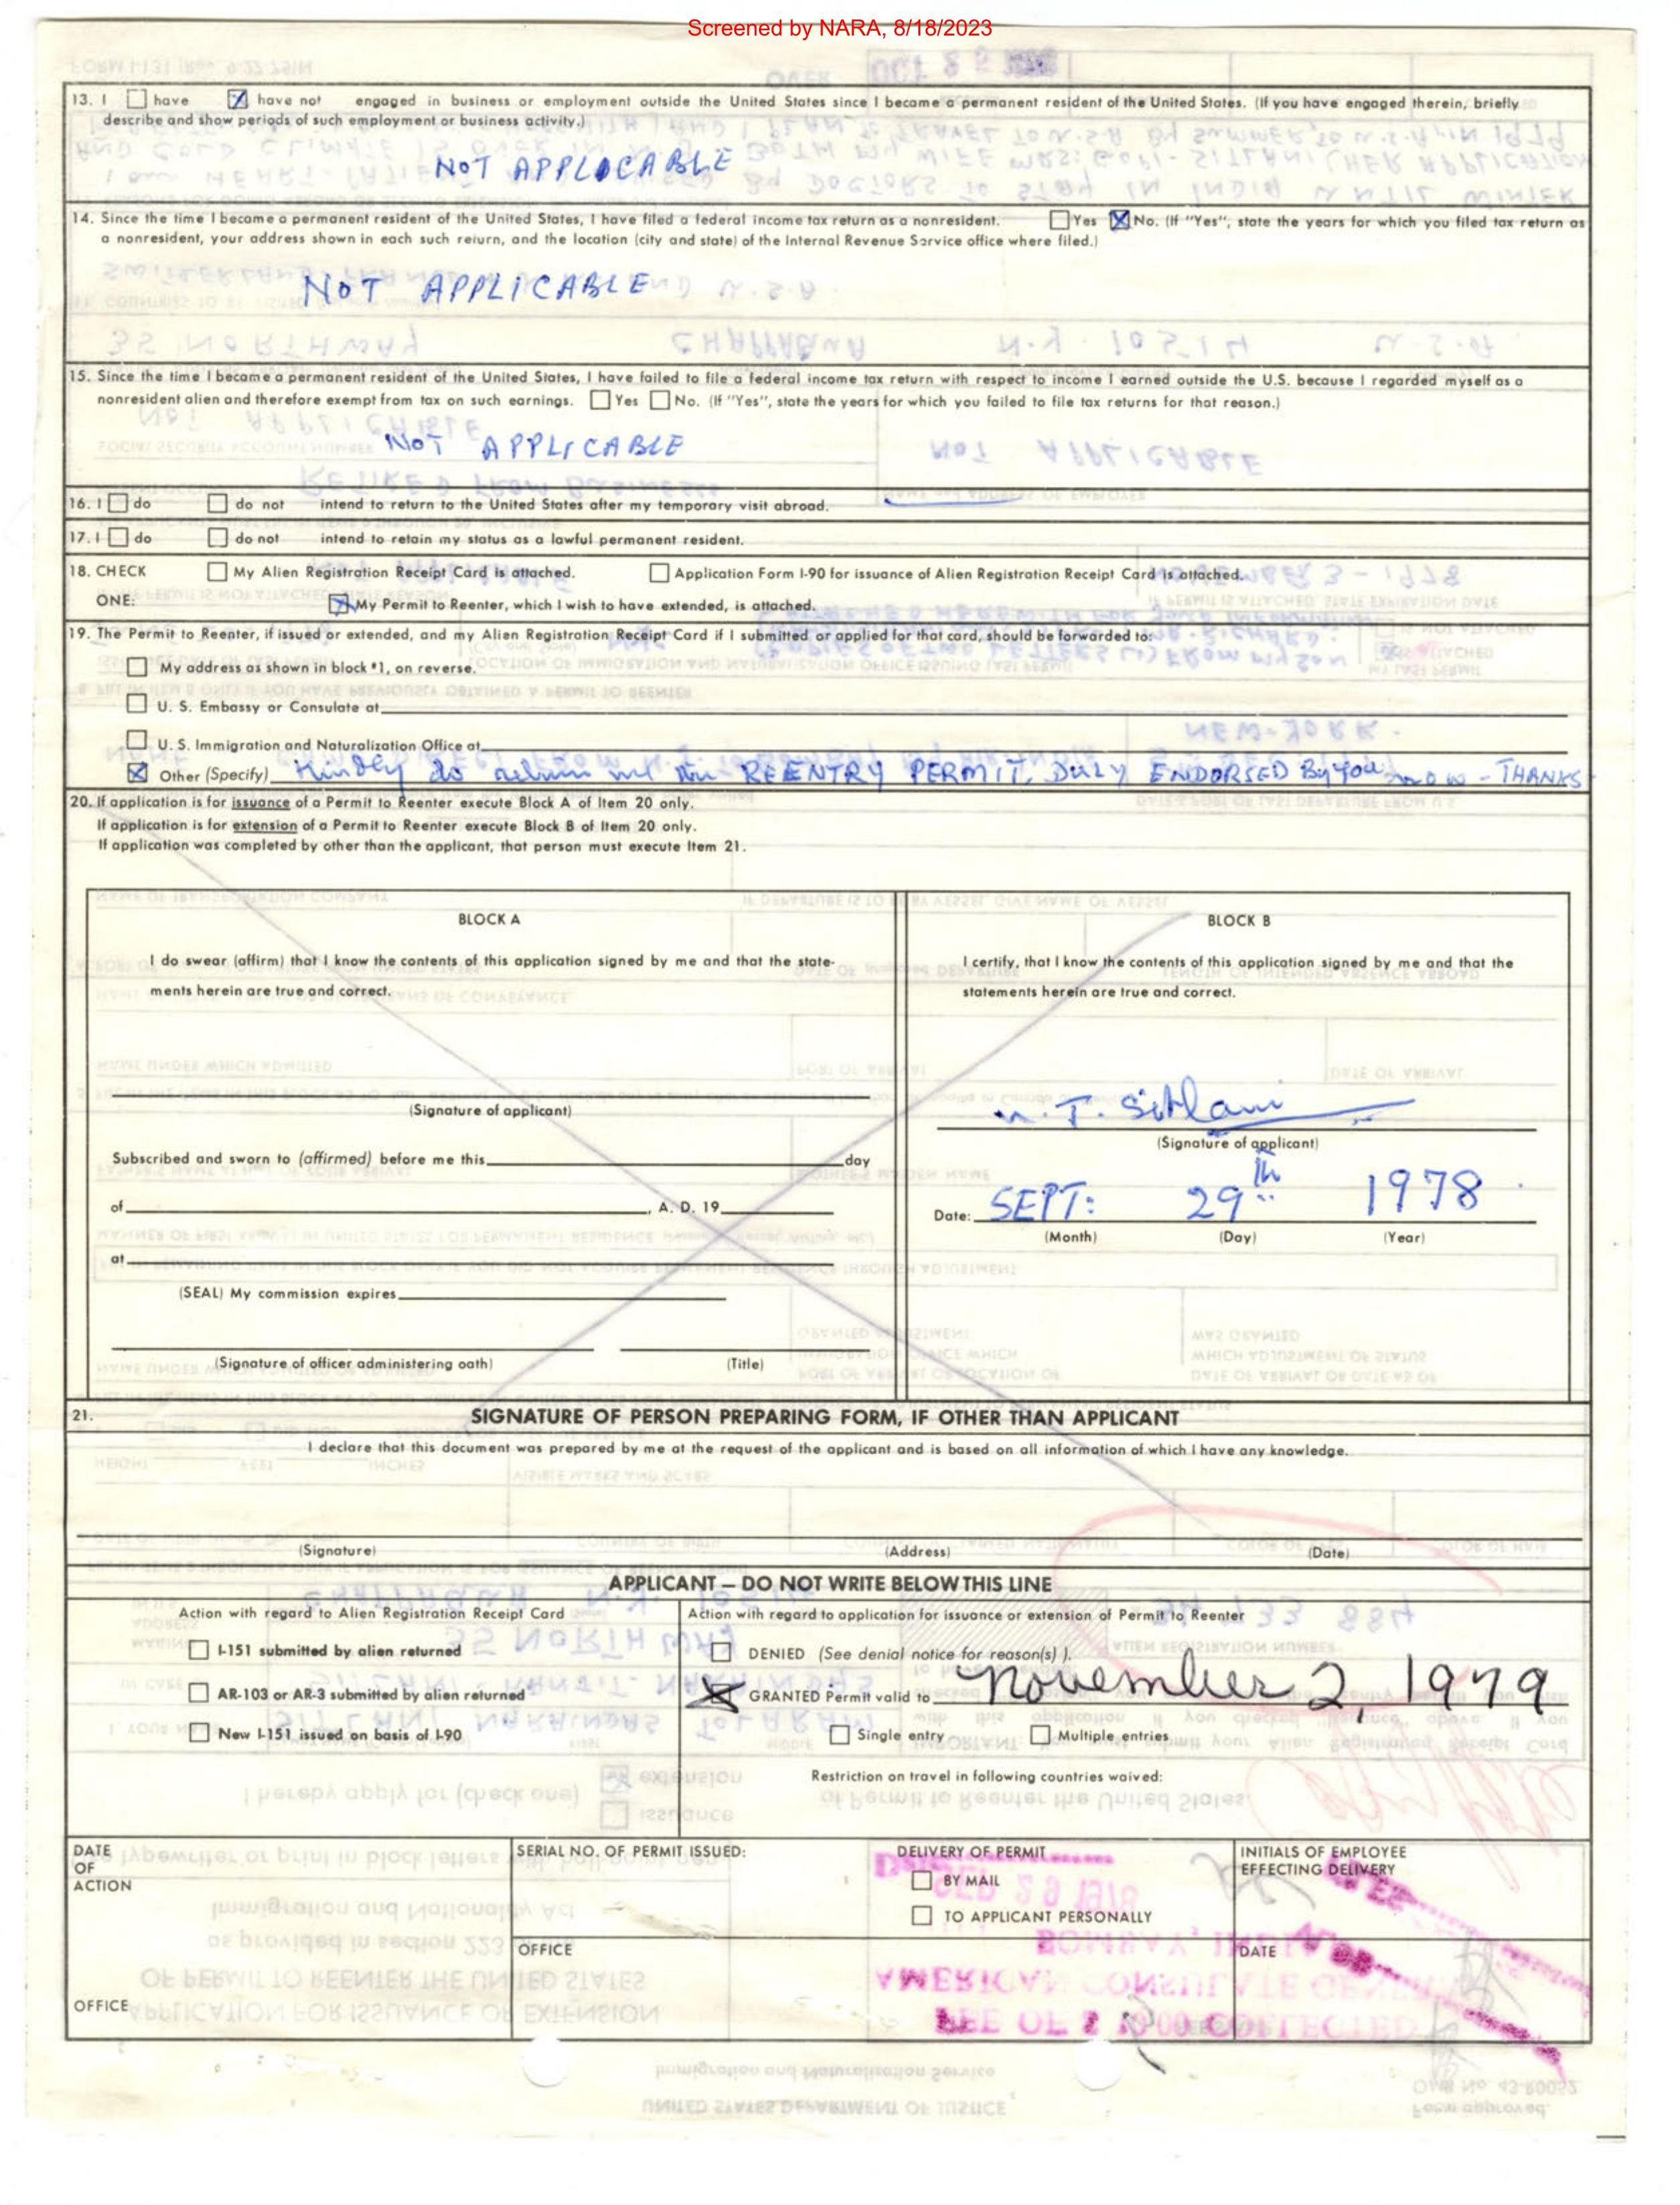 Screened by NARA, 8/18/2023
13. I have have not engaged in business or employment outside the United States since I became a permanent resident of the United States. (If you have engaged therein, briefly
describe and show periods of such employment or business activity.)
NOT APPLICABLE
14. Since the time I became a permanent resident of the United States, I have filed a federal income tax return as a nonresident. Yes No. (If "Yes", state the years for which you filed tax return as
a nonresident, your address shown in each such return, and the location (city and state) of the Internal Revenue Service office where filed.)
NOT APPLICABLE
15. Since the time I became a permanent resident of the United States, I have failed to file a federal income tax return with respect to income I earned outside the U.S. because I regarded myself as a
nonresident alien and therefore exempt from tax on such earnings. Yes No. (If "Yes", state the years for which you failed to file tax returns for that reason.)
NOT APPLICABLE
16. I do do not intend to return to the United States after my temporary visit abroad.
17. I do do not intend to retain my status as a lawful permanent resident.
18. CHECK My Alien Registration Receipt Card is attached. Application Form I-90 for issuance of Alien Registration Receipt Card is attached.
ONE: My Permit to Reenter, which I wish to have extended, is attached.
19. The Permit to Reenter, if issued or extended, and my Alien Registration Receipt Card if I submitted or applied for that card, should be forwarded to:
My address as shown in block #1, on reverse.
U. S. Embassy or Consulate at
U. S. Immigration and Naturalization Office at
Other (Specify) Kindly do return me the REENTRY PERMIT, DULY ENDORSED By you now - THANKS
20. If application is for issuance of a Permit to Reenter execute Block A of Item 20 only.
If application is for extension of a Permit to Reenter execute Block B of Item 20 only.
If application was completed by other than the applicant, that person must execute Item 21.
BLOCK A
I do swear (affirm) that I know the contents of this application signed by me and that the state-
ments herein are true and correct.
(Signature of applicant)
Subscribed and sworn to (affirmed) before me this day
of , A. D. 19
at
(SEAL) My commission expires
(Signature of officer administering oath) (Title)
BLOCK B
I certify, that I know the contents of this application signed by me and that the
statements herein are true and correct.
N. T. Sitlani
(Signature of applicant)
Date: SEPT: 29th 1978
(Month) (Day) (Year)
21. SIGNATURE OF PERSON PREPARING FORM, IF OTHER THAN APPLICANT
I declare that this document was prepared by me at the request of the applicant and is based on all information of which I have any knowledge.
(Signature) (Address) (Date)
APPLICANT – DO NOT WRITE BELOW THIS LINE
Action with regard to Alien Registration Receipt Card
I-151 submitted by alien returned
AR-103 or AR-3 submitted by alien returned
New I-151 issued on basis of I-90
Action with regard to application for issuance or extension of Permit to Reenter
DENIED (See denial notice for reason(s) ).
GRANTED Permit valid to November 2, 1979
Single entry Multiple entries
Restriction on travel in following countries waived:
DATE
OF
ACTION
OFFICE
SERIAL NO. OF PERMIT ISSUED:
OFFICE
DELIVERY OF PERMIT
BY MAIL
TO APPLICANT PERSONALLY
INITIALS OF EMPLOYEE
EFFECTING DELIVERY
DATE